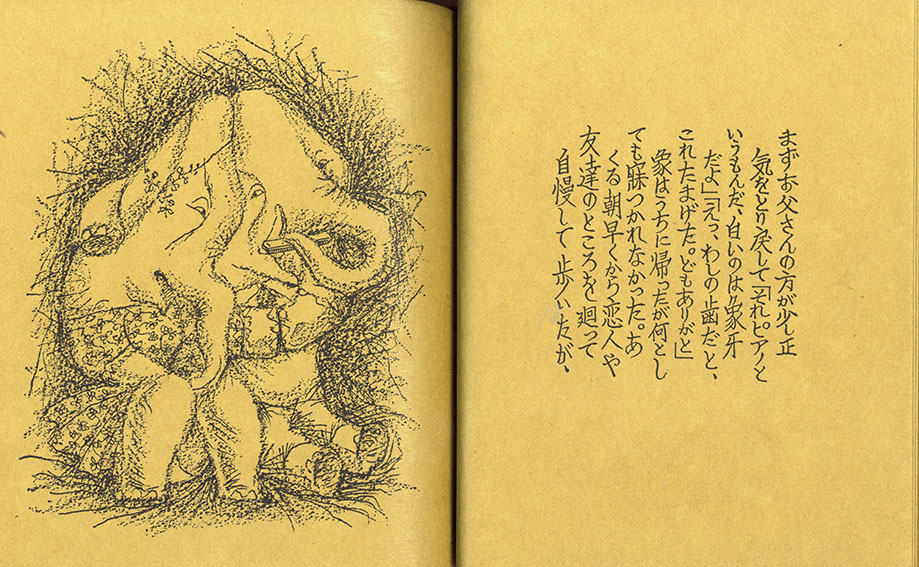 まずお父さんの方が少し正
気をとり戻して「それピアノと
いうもんだ、白いのは象牙
だよ」「えっ、わしの歯だと、
これたまげた。どもありがと」
象はうちに帰ったが何とし
ても寐つかれなかった。あ
くる朝早くから恋人や
友達のところを廻って
自慢して歩いたが、